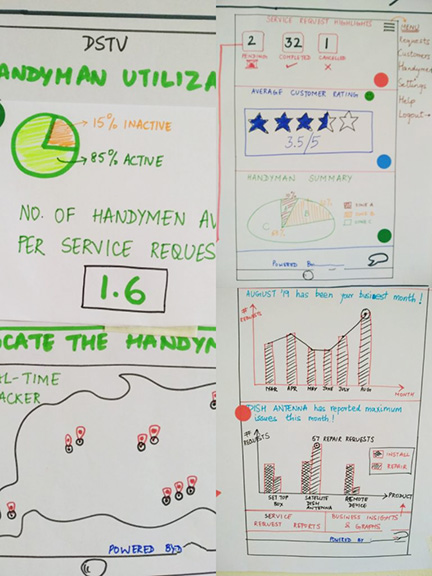 DSTV
HANDYMAN UTILIZA
15% INACTIVE
85% ACTIVE
NO. OF HANDYMEN AV
PER SERVICE REQUES
1.6
OCATE THE HANDYM
AL-TIME
ACKER
POWERED BY
SERVICE REQUEST HIGHLIGHTS
2
32
1
PENDING
COMPLETED
CANCELLED
AVERAGE CUSTOMER RATING
3.5/5
HANDYMAN SUMMARY
POWERED BY
MENU
Requests
Customers
Handymen
Settings
Help
Logout→
AUGUST '19 has been your busiest month!
# REQUESTS
MAR APR MAY JUNE JULY AUG
MONTH
DISH ANTENNA has reported maximum
issues this month!
# REQUESTS
67 REPAIR REQUESTS
INSTALL
REPAIR
SET TOP BOX
SATELLITE DISH ANTENNA
REMOTE DEVICE
PRODUCT
SERVICE REQUEST REPORTS
BUSINESS INSIGHTS & GRAPHS
POWERED BY